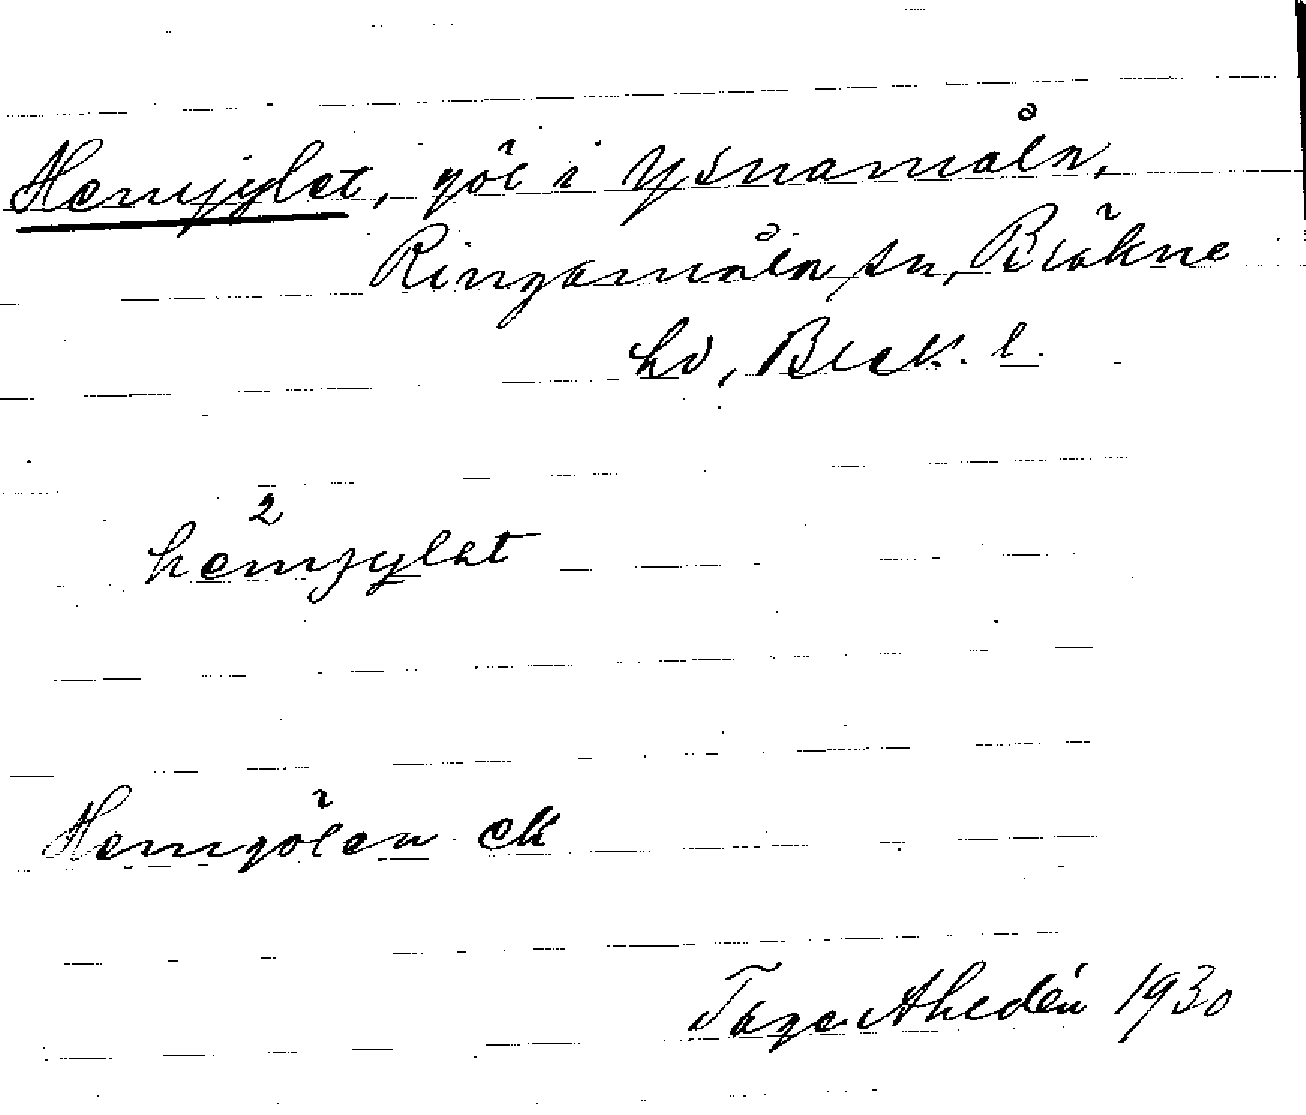 Hemjylet, göl i Ysnamåla,
Ringamåla sn, Bräkne
hd, Blek. l.
2
hemjylet
Hemgölen ek
Tage Ahldén 1930